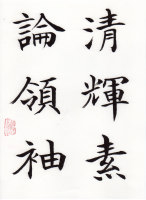 清輝素
論領袖